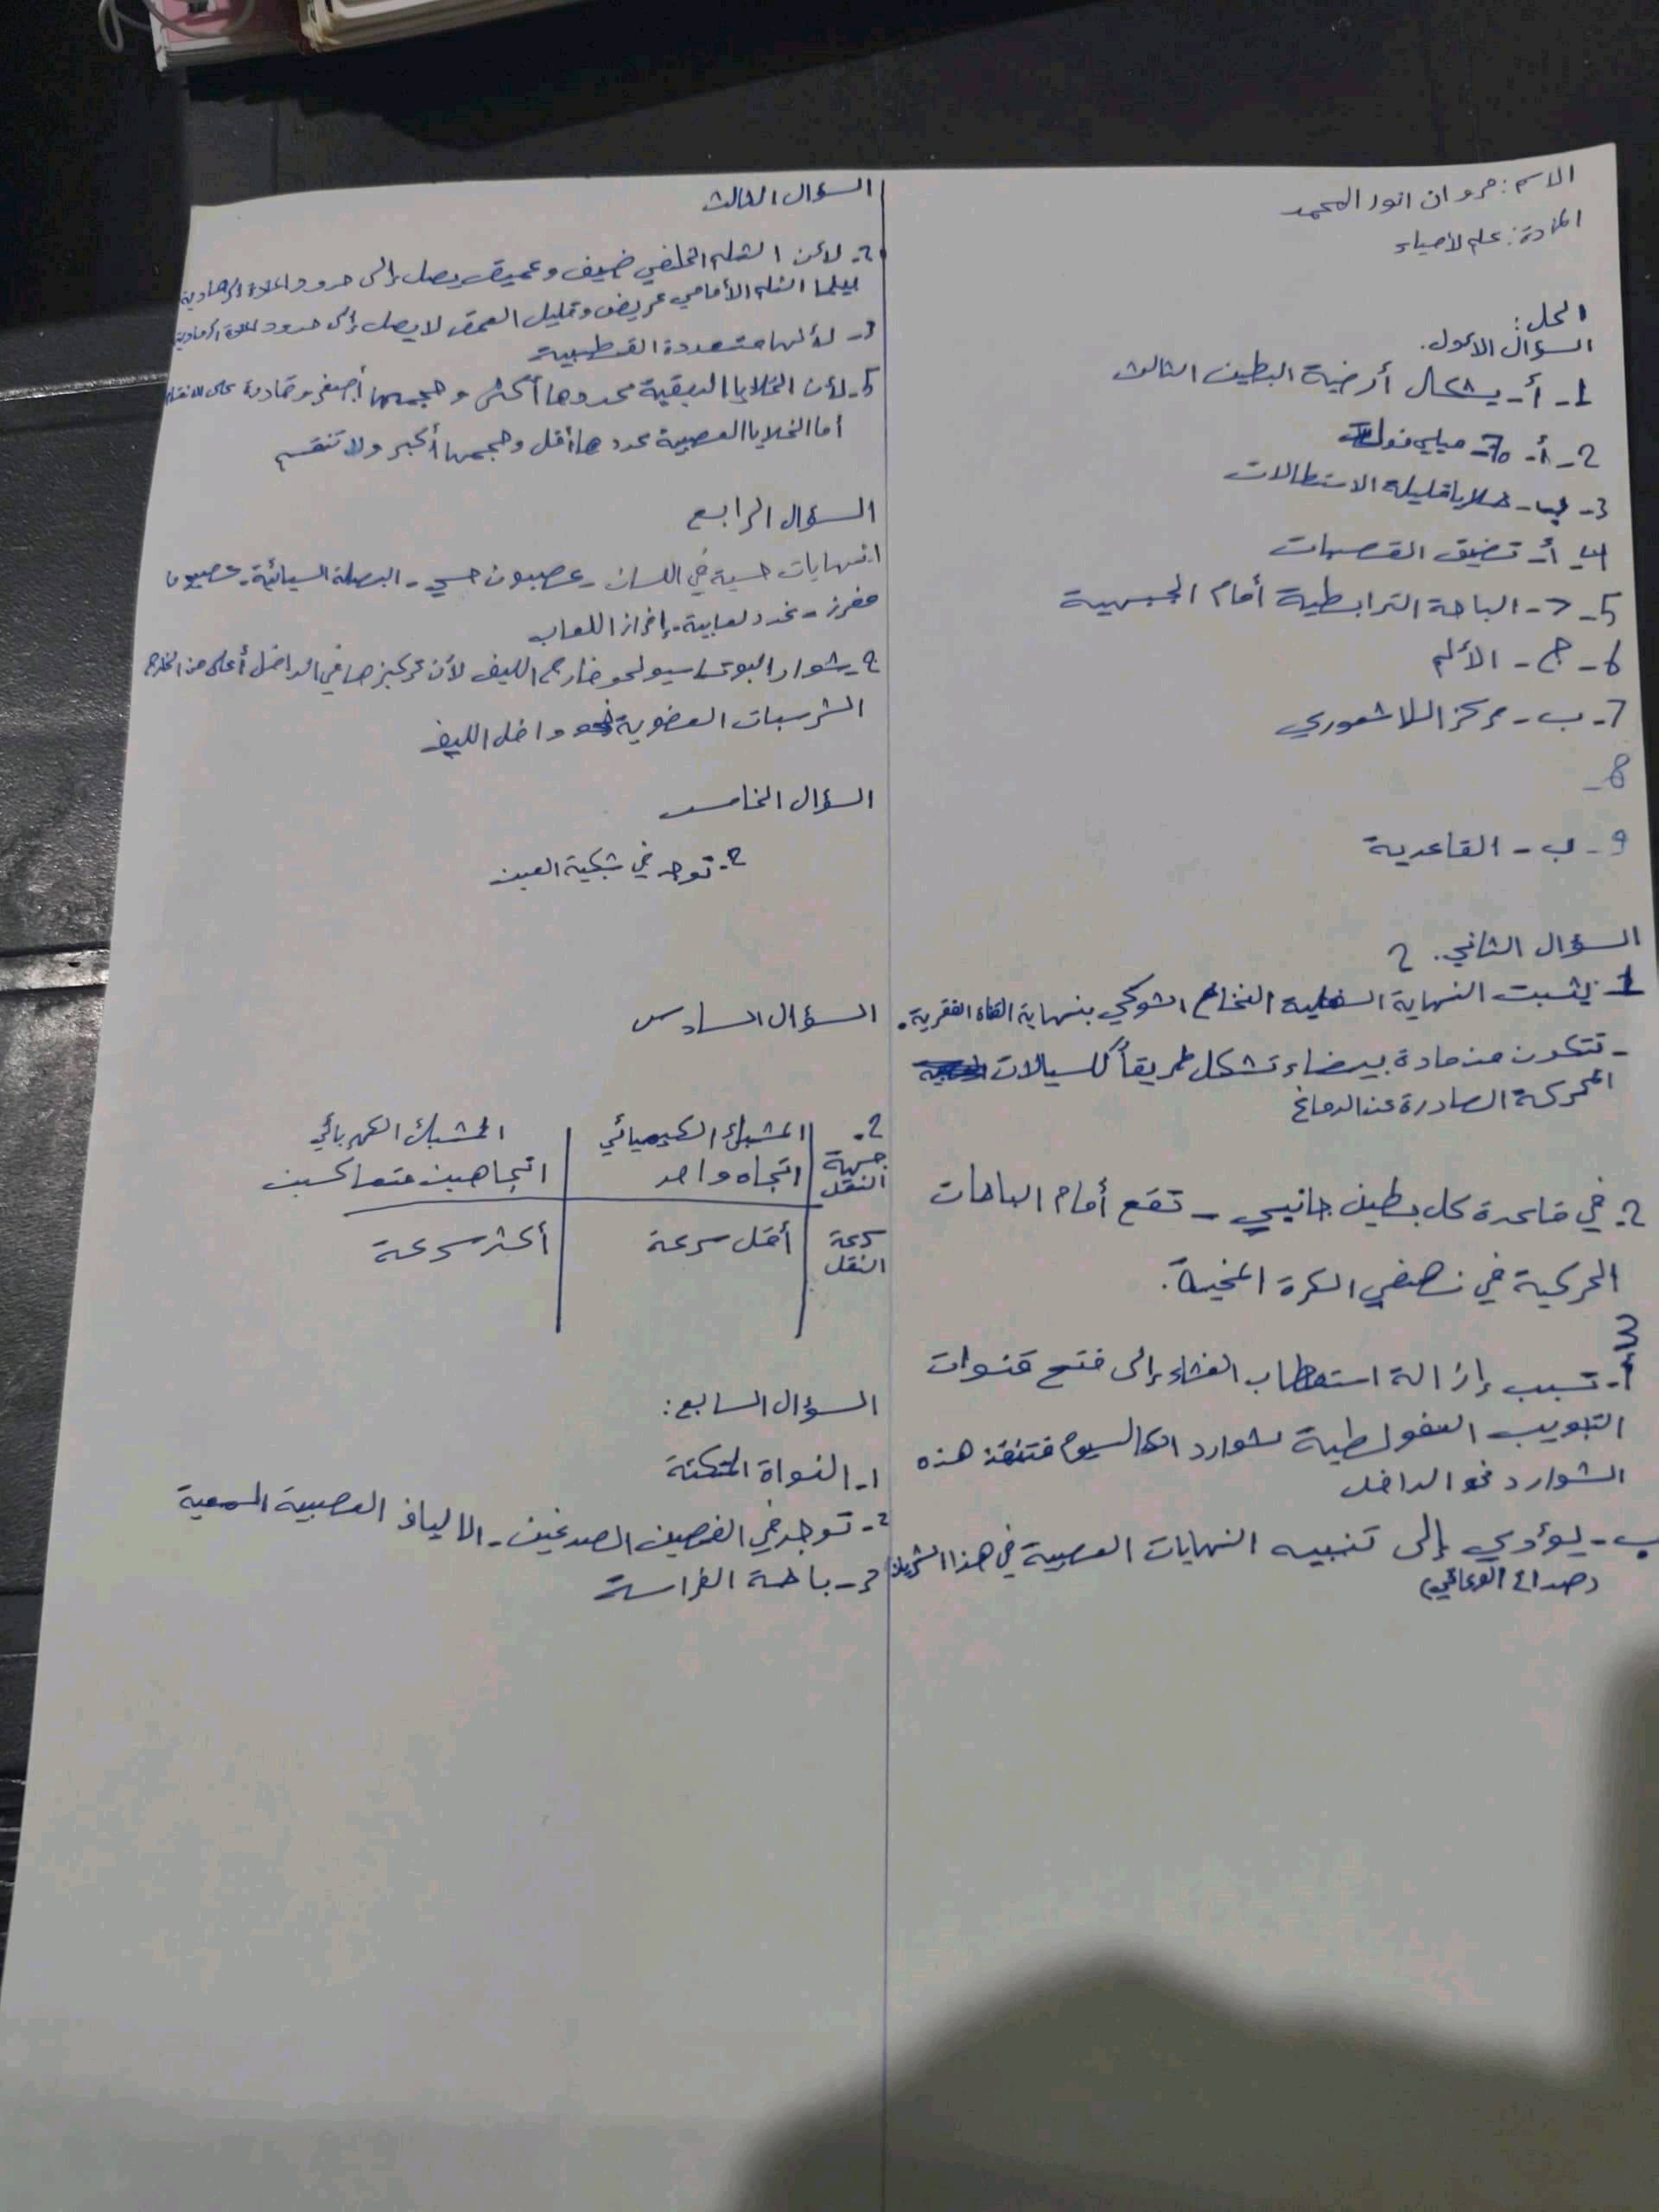 الاسم: مروان انور المحمد
المادة: علم الأحياء
الحل:
السؤال الأول.
1- أ- يشكل أرضية البطين الثالث
2- أ- -70 ميلي فولط
3- ب- خلايا قليلة الاستطالات
4- أ- تضيق القصبات
5- د- الباحة الترابطية أمام الجبهية
6- ج- الألم
7- ب- مركز اللاشعوري
8-
9- ب- القاعدية
السؤال الثاني. 2
1- يثبت النهاية السفلية النخاع الشوكي بنهاية القناة الفقرية.
- تتكون من مادة بيضاء تشكل طريقاً للسيالات
المحركة الصادرة عن الدماغ
2. في قاعدة كل بطين جانبي - تقع أمام الباحات
الحركية في نصفي الكرة المخية.
3
أ- تسبب إزالة استقطاب الغشاء إلى فتح قنوات
التبويب الفولطية لشوارد الكالسيوم فتنفذ هذه
الشوارد نحو الداخل
ب- يؤدي إلى تنبيه النهايات العصبية في هذا الشريان
(صداع الوعائي)
السؤال الثالث
2. لأن الثلم الخلفي ضيف وعميق يصل إلى حدود المادة الرمادية
بينما الثلم الأمامي عريض وقليل العمق لا يصل إلى حدود المادة الرمادية
3- لأنها متعددة القطبية
5- لأن الخلايا الدبقية عددها أكثر وحجمها أصغر وقادرة على الانقسام
أما الخلايا العصبية عددها أقل وحجمها أكبر ولا تنقسم
السؤال الرابع
1. نهايات حسية في اللسان - عصبون حسي - البصلة السيسائية - عصبون
مفرز - غدد لعابية - إفراز اللعاب
2- شوارد البوتاسيوم نحو خارج الليف لأن تركيزها في الداخل أعلى من الخارج
الشرسبات العضوية نحو داخل الليف
السؤال الخامس
2. توجد في شبكية العين
السؤال السادس
2. المشبك الكيميائي المشبك الكهربائي
جهة النقل اتجاه واحد اتجاهين متعاكسين
سرعة النقل أقل سرعة أكثر سرعة
السؤال السابع:
1- النواة المتكئة
2- توجد في الفصين الصدغين - الالياف العصبية السمعية
3- باحة الفراسة